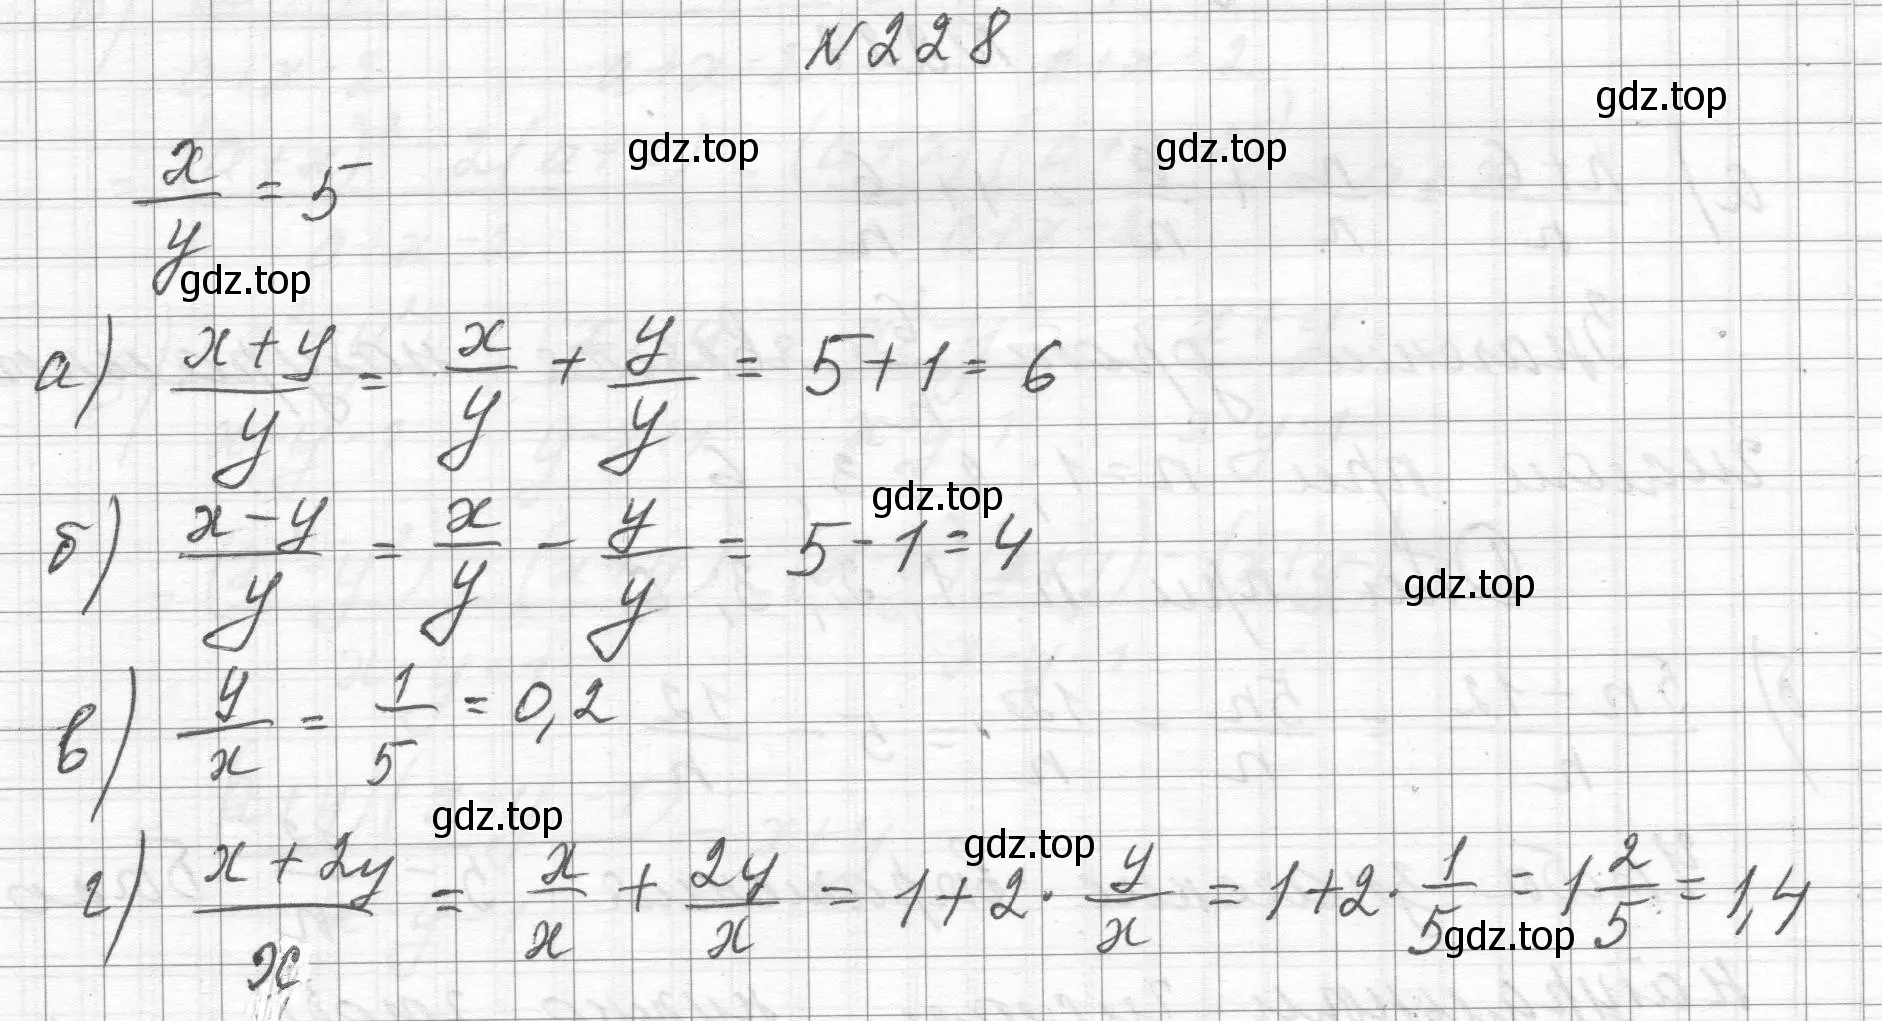 N228
gdz.top
gdz.top gdz.top
x/y = 5
gdz.top
а) (x+y)/y = x/y + y/y = 5+1 = 6
gdz.top
б) (x-y)/y = x/y - y/y = 5-1 = 4
gdz.top
в) y/x = 1/5 = 0,2
gdz.top gdz.top
г) (x+2y)/x = x/x + 2y/x = 1+2·y/x = 1+2·1/5 = 1 2/5 = 1,4
gdz.top